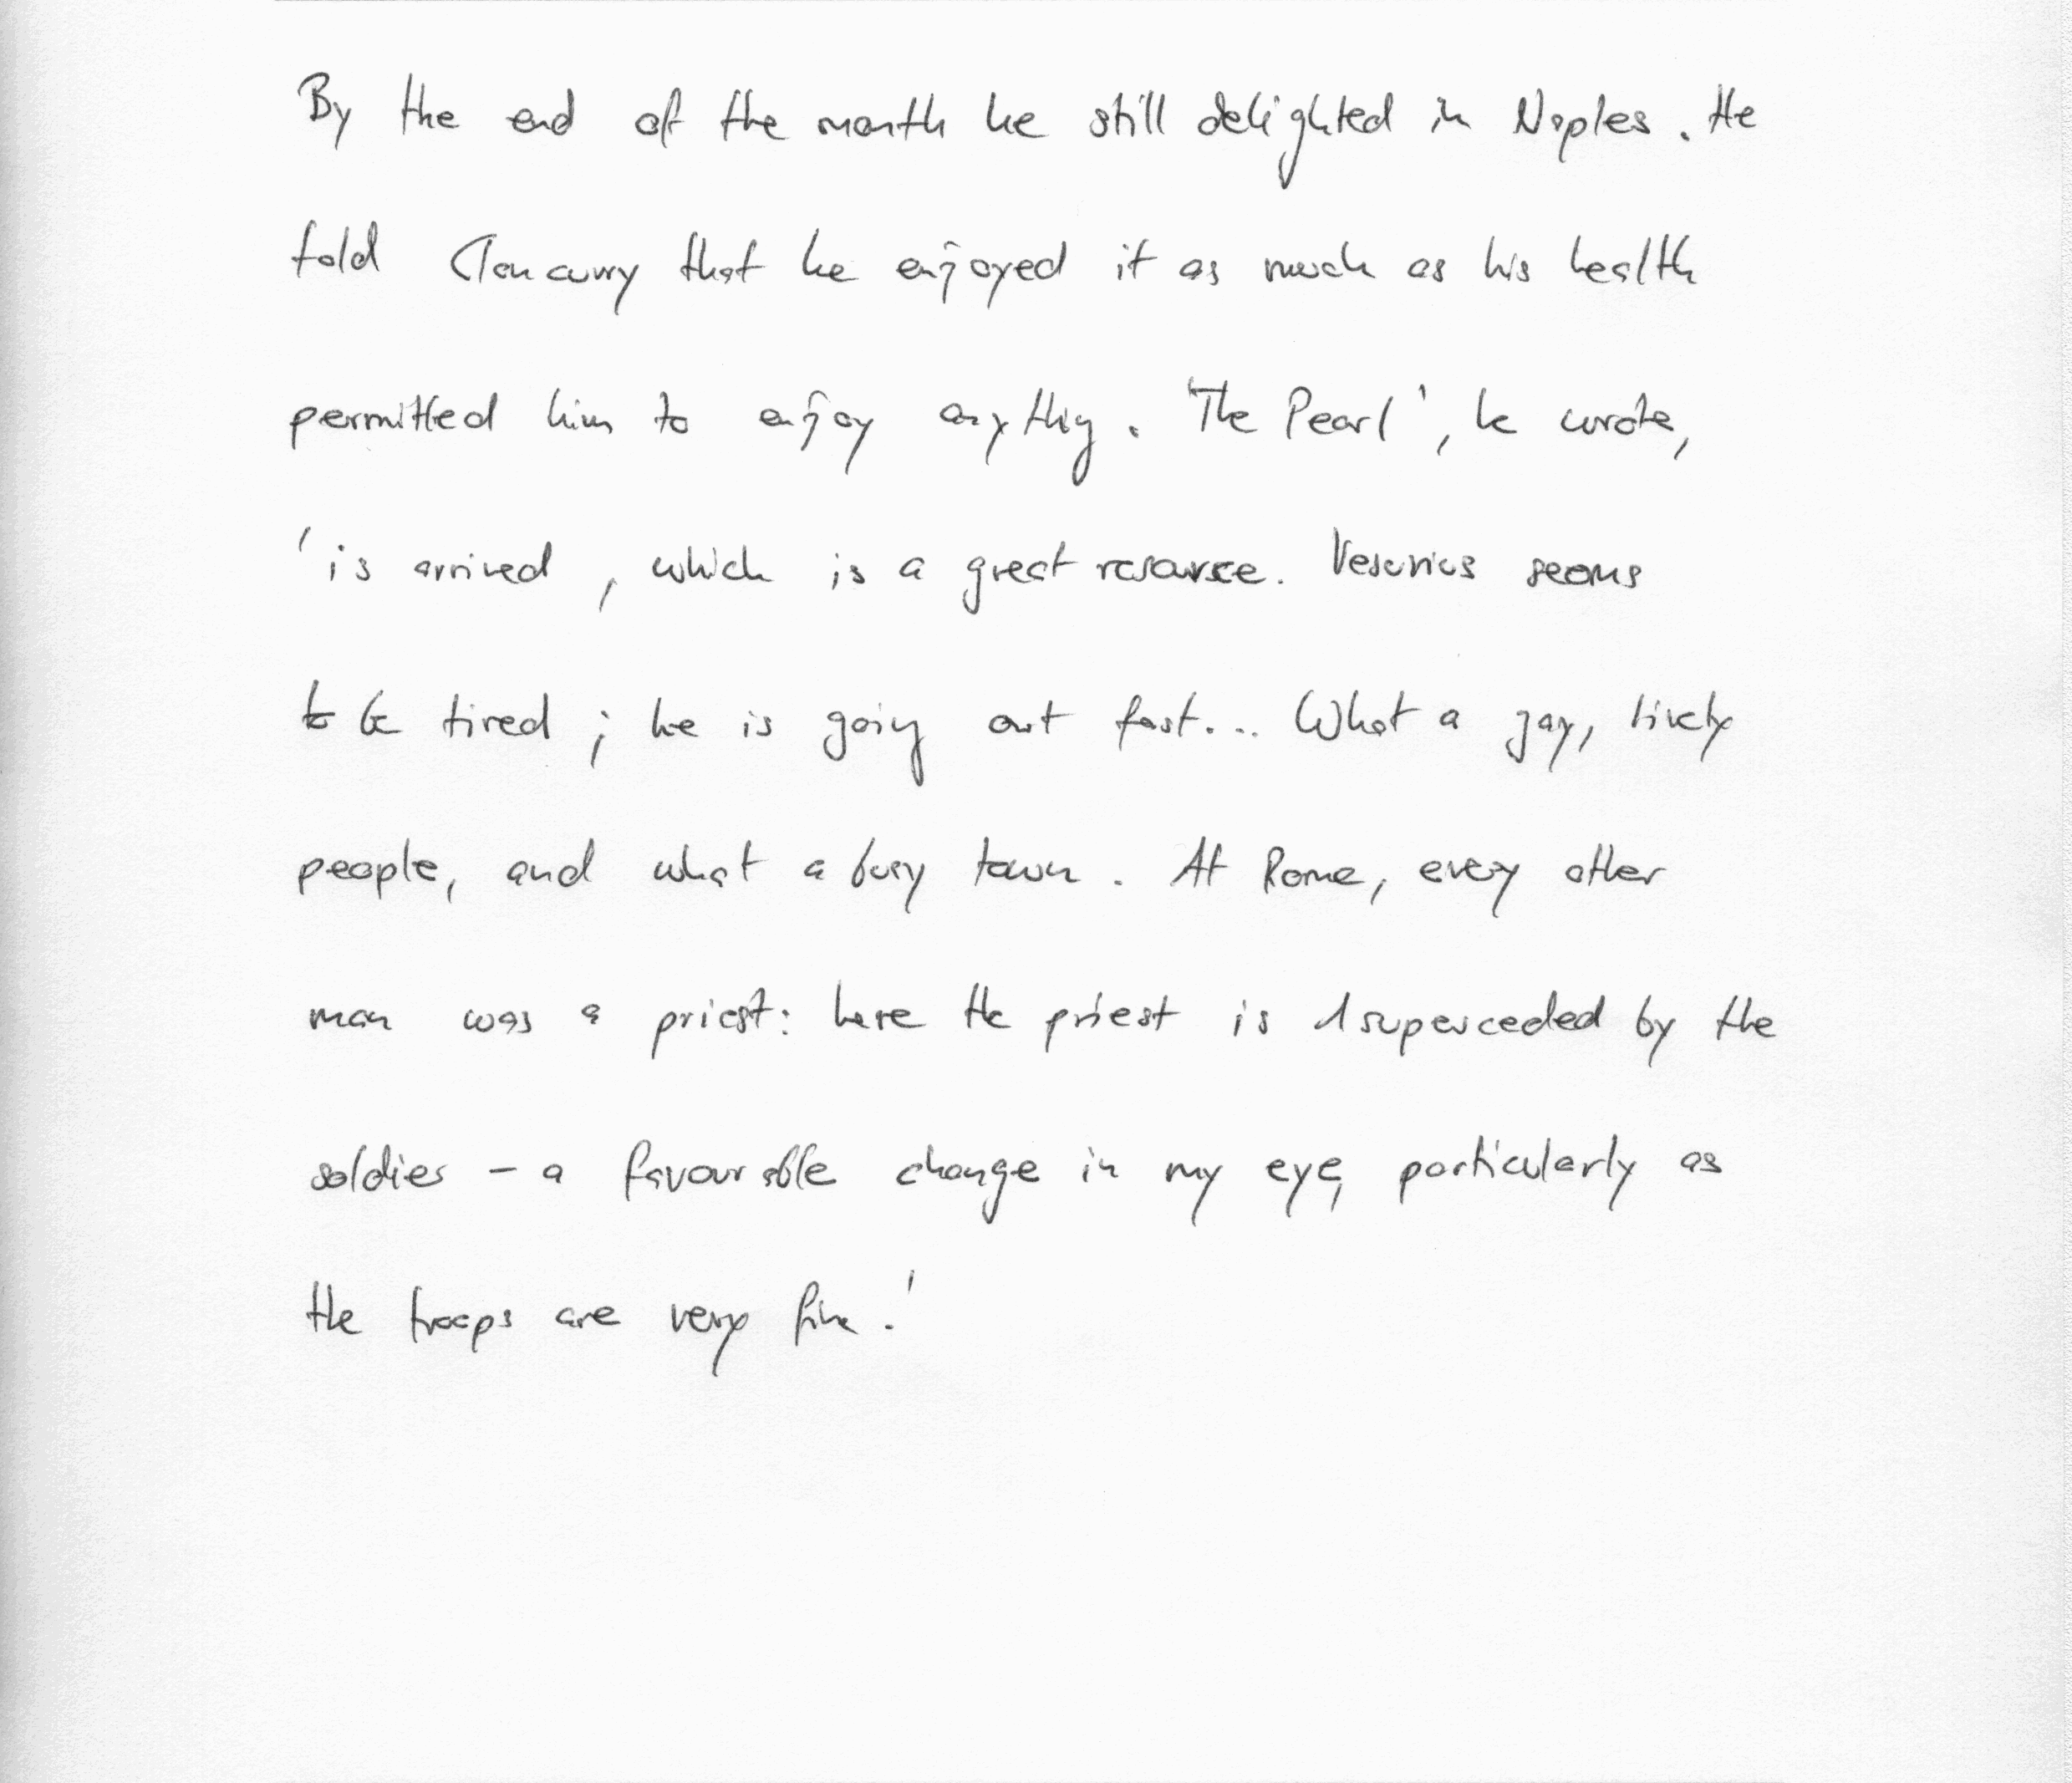 By the end of the month he still delighted in Naples. He
told Cloncurry that he enjoyed it as much as his health
permitted him to enjoy anything. 'The Pearl', he wrote,
'is arrived, which is a great resource. Vesuvius seems
to be tired; he is going out fast... What a gay, lively
people, and what a busy town. At Rome, every other
man was a priest: here the priest is superceded by the
soldier - a favourable change in my eye, particularly as
the troops are very fine.'